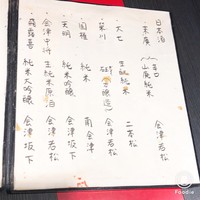 日本酒
・末廣 辛口 山廃純米 会津若松
・大七 生酛純米 二本松
・栄川 会津若松
・国権 純米 南会津
・天明 純米吟醸 会津坂下
・会津中将 純米原酒 会津若松
・飛露喜 純米大吟醸 会津坂下
Foodie